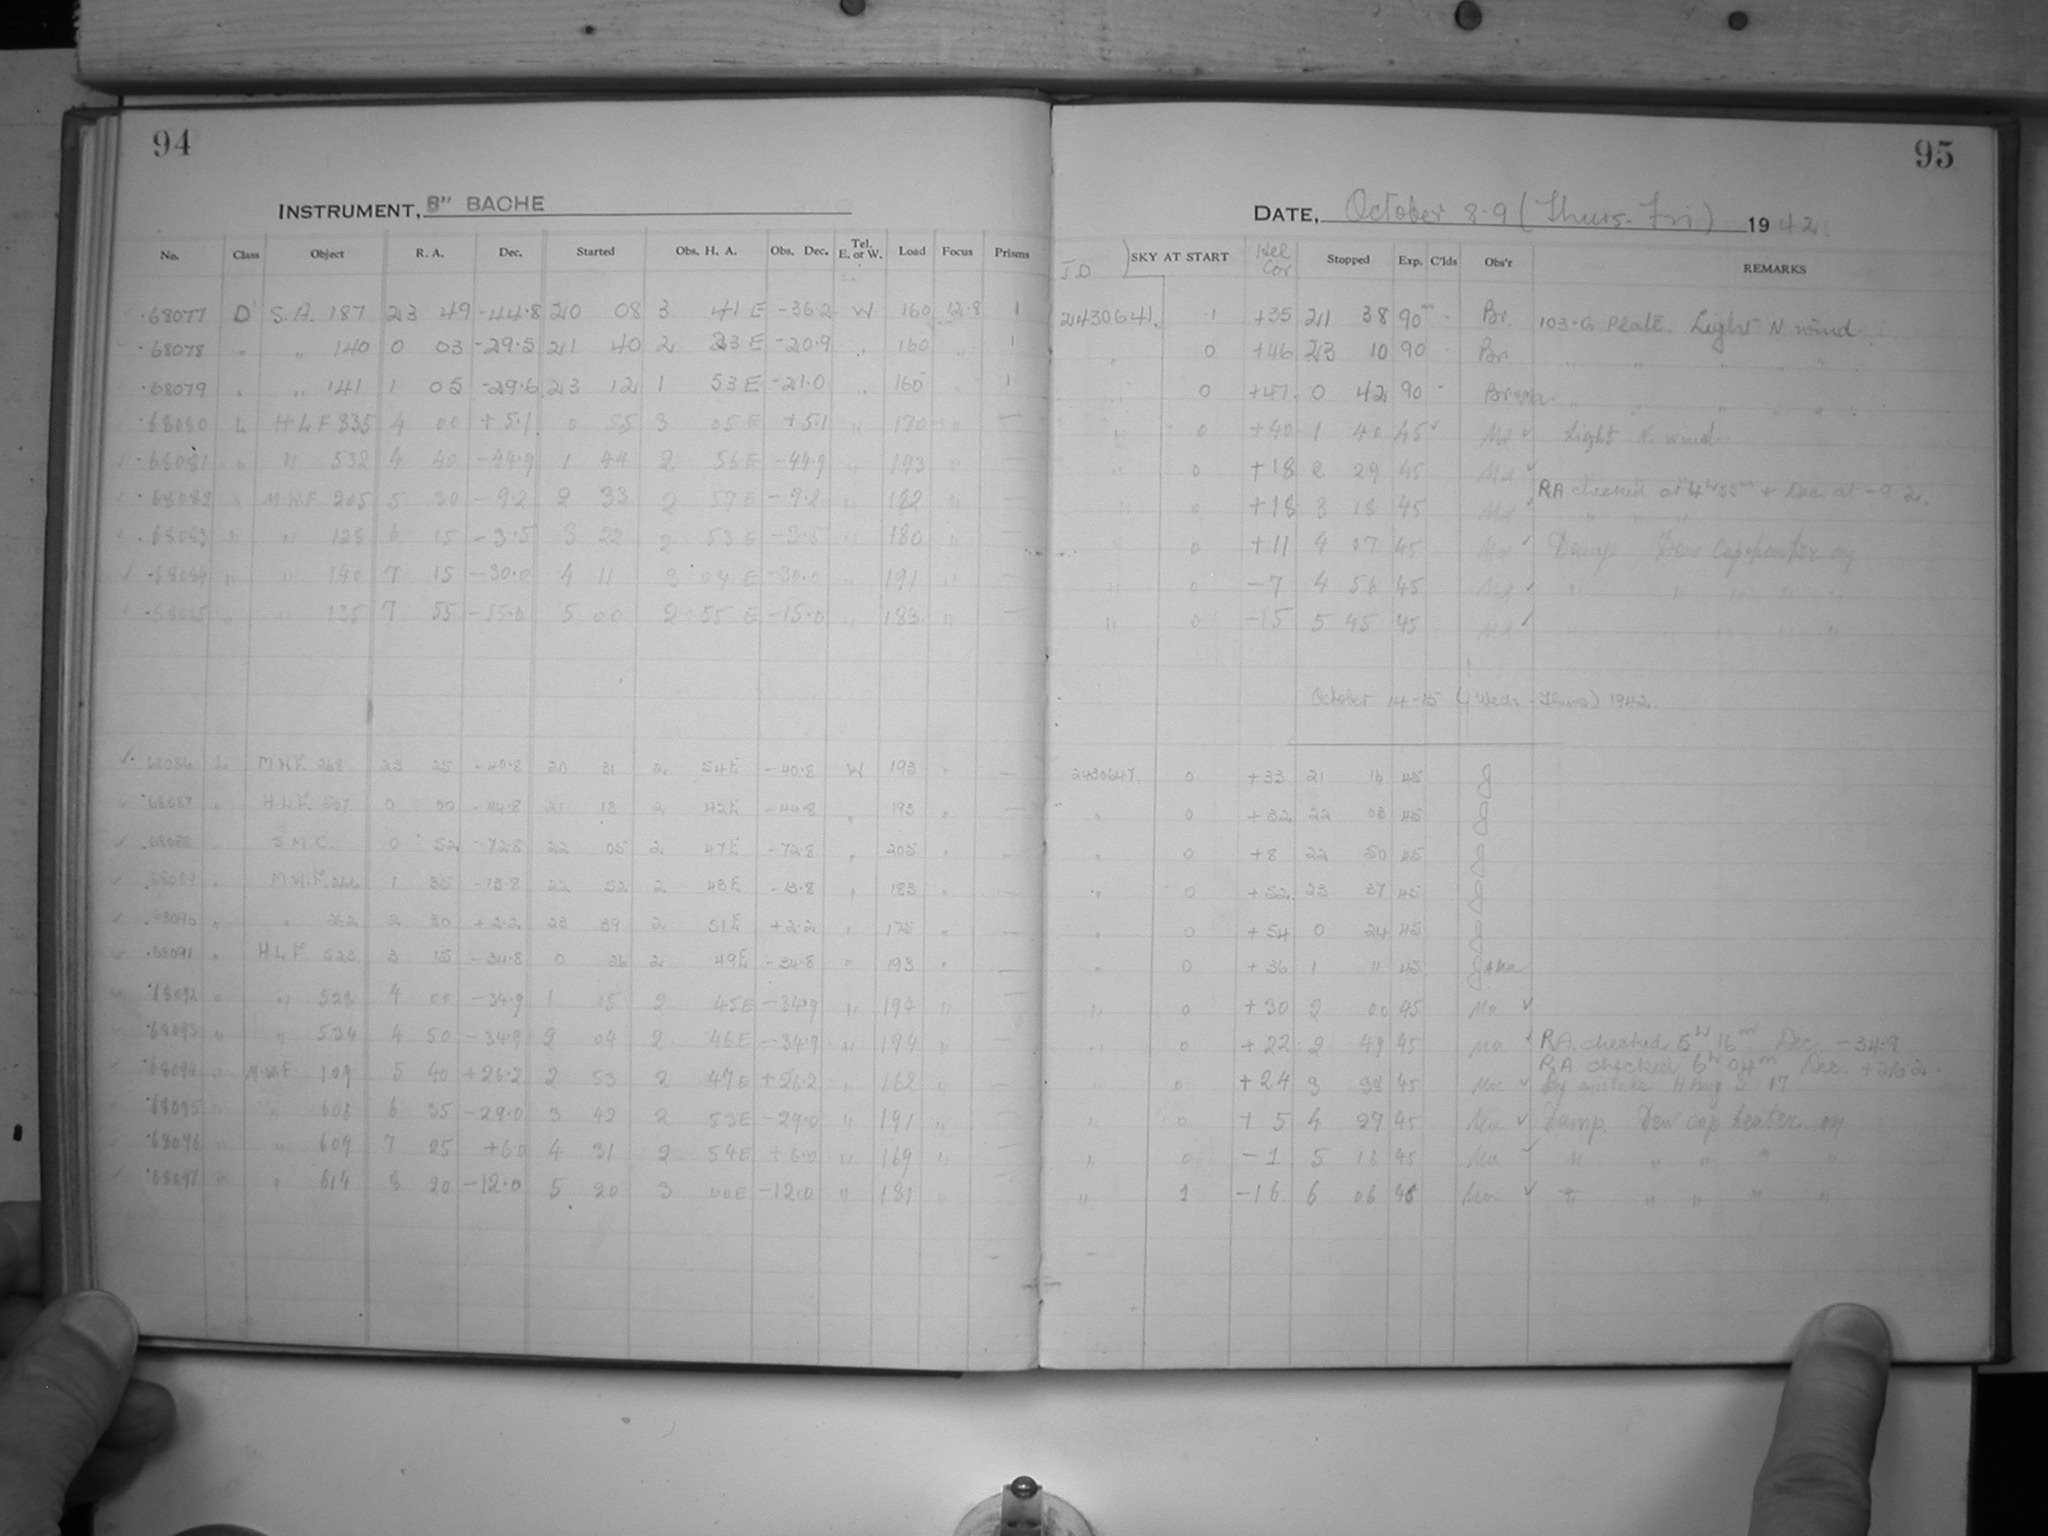 94
INSTRUMENT, 8" BACHE
No. Class Object R. A. Dec. Started Obs. H. A. Obs. Dec. Tel. E. or W. Load Focus Prisms
68077 D' S.A. 187 23 49 -44.8 20 08 3 41 E -36.2 W 160 12.8 1
68078 " " 140 0 03 -29.5 21 40 2 23 E -20.9 " 160 " 1
68079 " " 141 1 05 -29.6 23 12 1 53 E -21.0 " 160 " 1
68080 L H.L.F 335 4 00 +5.1 0 55 3 05 E +5.1 " 170 " —
68081 " " 532 4 40 -44.9 1 44 2 56 E -44.9 " 193 " —
68082 " M.W.F. 205 5 30 -9.2 2 33 2 57 E -9.2 " 182 " —
68083 " " 128 6 15 -3.5 3 22 2 53 E -3.5 " 180 " —
68084 " " 140 7 15 -30.0 4 11 3 04 E -30.0 " 191 " —
68085 " " 135 7 55 -15.0 5 00 2 55 E -15.0 " 183 " —
68086 L M.W.F. 268 23 25 -40.8 20 31 2 54 E -40.8 W 193 " —
68087 " H.L.F. 0 30 -44.8 21 18 2 42 E -44.8 " 193 " —
68088 " S.M.C. 0 52 -72.8 22 05 2 47 E -72.8 " 205 " —
68089 " M.W.F. 266 1 35 -13.8 22 52 2 43 E -13.8 " 183 " —
68090 " " 262 2 30 +2.2 23 39 2 51 E +2.2 " 175 " —
68091 " H.L.F 523 3 15 -34.8 0 26 2 49 E -34.8 " 193 " —
68092 " " 528 4 00 -34.9 1 15 2 45 E -34.9 " 194 " —
68093 " " 524 4 50 -34.9 2 04 2 46 E -34.9 " 194 " —
68094 " M.W.F. 109 5 40 +26.2 2 53 2 47 E +26.2 " 162 " —
68095 " " 608 6 35 -29.0 3 42 2 53 E -29.0 " 191 " —
68096 " " 609 7 25 +6.0 4 31 2 54 E +6.0 " 169 " —
68097 " " 614 8 20 -12.0 5 20 3 00 E -12.0 " 181 " —
95
DATE, October 8-9 (Thurs-Fri) 1942.
J D SKY AT START Hel Cor Stopped Exp. C'lds Obs'r REMARKS
2430641. 1 +35 21 38 90m Br. 103-G Plate. Light N wind
" 0 +46 23 10 90 Br. " " " "
" 0 +41 0 42 90 " " " "
" 0 +40 1 40 45 Md Light N wind
" 0 +18 2 29 45 Md
RA checked at 4h55m + Dec. at -9.2.
" 0 +18 3 18 45 Md " " "
" 0 +11 4 07 45 Md Damp Dew cap heater on
" 0 -7 4 56 45 Md " " " " "
" 0 -15 5 45 45 Md " " " " "
October 14-15 (Wed - Thurs) 1942.
2430647. 0 +33 21 16 45
" 0 +32 22 03 45
" 0 +8 22 50 45
" 0 +52 23 37 45
" 0 +54 0 24 45
" 0 +36 1 11 45
" 0 +30 2 00 45 Ma
" 0 +22 2 49 45 Ma RA checked 5h 16m Dec -34.9
RA checked 6h 04m Dec. +26.2.
" 0 +24 3 38 45 Ma by mistake H Ang 2 17
" 0 +5 4 27 45 Ma Damp. Dew cap heater on
" 0 -1 5 16 45 Ma " " " " "
" 1 -16 6 06 46 Ma " " " " "